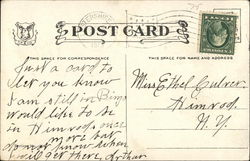 POST CARD
THIS SPACE FOR CORRESPONDENCE
THIS SPACE FOR NAME AND ADDRESS
Just a card to
let you know
I am still in Bing
would like to be
in Himrod once
more but
do not know when
I will get there. Arthur
Miss Ethel Culver
Himrod
N.Y.